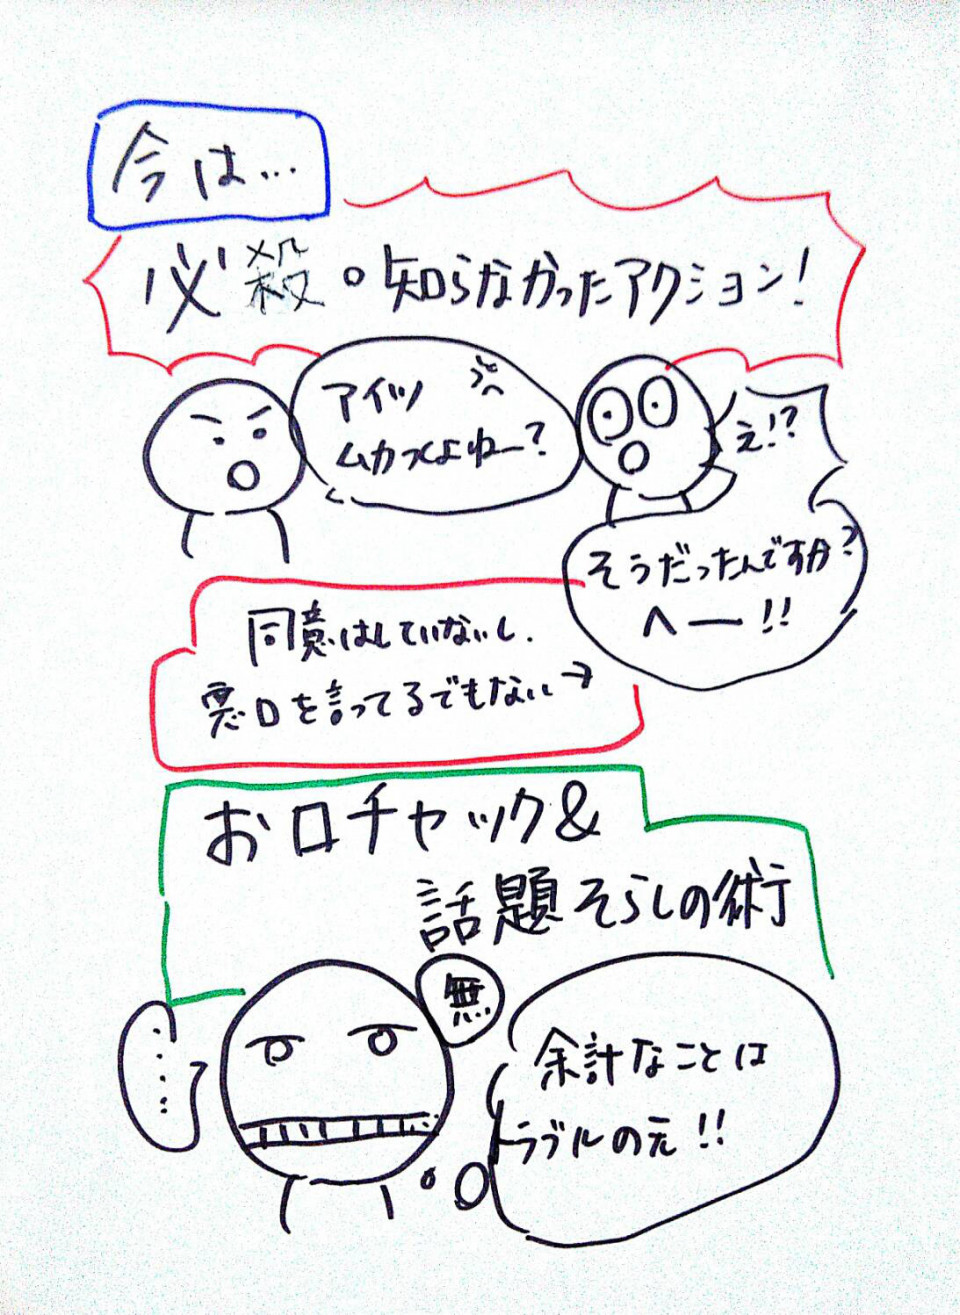 今は…
必殺。知らなかったアクション!
アイツ
ムカつくよねー?
え!?
そうだったんですか?
へー!!
同意はしていないし.
悪口を言ってるでもない→
お口チャック&
話題そらしの術
無
……
余計なことは
トラブルのえ!!